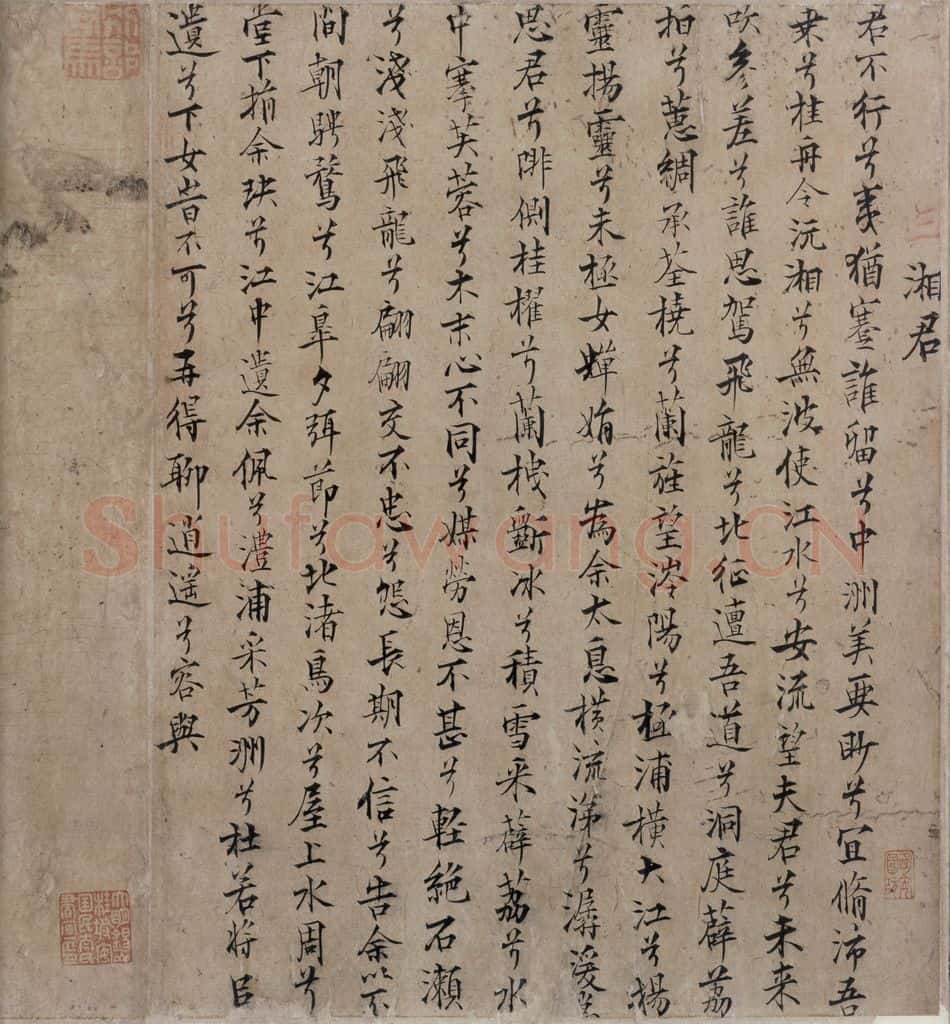 三
湘君
君不行兮夷猶蹇誰留兮中洲美要眇兮宜脩沛吾
椉兮桂舟令沅湘兮無波使江水兮安流望夫君兮未来
吹參差兮誰思駕飛龍兮北征邅吾道兮洞庭薜荔
拍兮蕙綢承荃橈兮蘭旌望涔陽兮極浦橫大江兮揚
靈揚靈兮未極女嬋娟兮為余太息橫流涕兮潺湲
思君兮陫側桂櫂兮蘭栧斵冰兮積雪采薜荔兮水
中搴芙蓉兮木末心不同兮媒勞恩不甚兮軽絶石瀨
兮淺淺飛龍兮翩翩交不忠兮怨長期不信兮告余以不
間朝騁騖兮江皐夕弭節兮北渚鳥次兮屋上水周兮
堂下捐余玦兮江中遺余佩兮澧浦采芳洲兮杜若將㠯
遺兮下女旹不可兮再得聊逍遥兮容與
Shufawang.CN